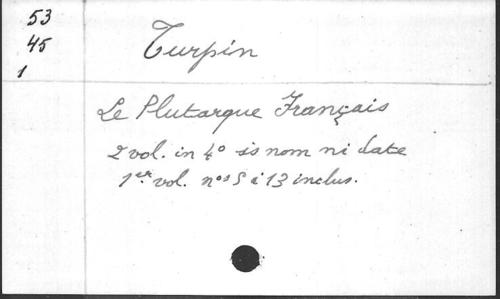 53
45
1
Turpin
Le Plutarque Français
2 vol. in 4° ss nom ni date
1er vol. nos 5 à 13 inclus.